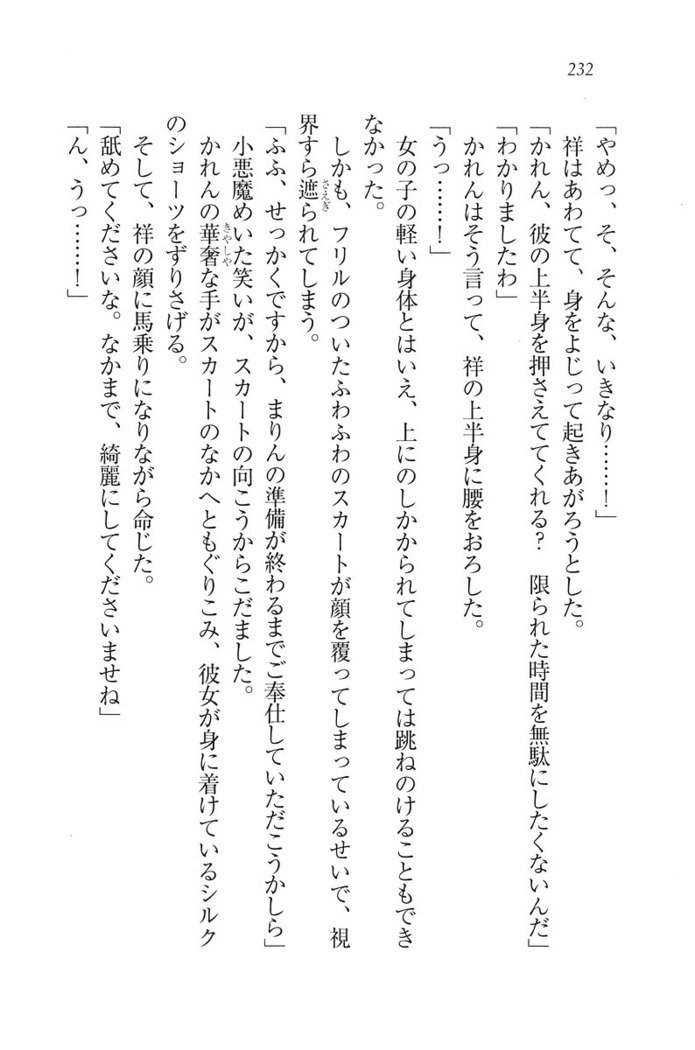 232
「やめっ、そ、そんな、いきなり……！」
祥はあわてて、身をよじって起きあがろうとした。
「かれん、彼の上半身を押さえててくれる？　限られた時間を無駄にしたくないんだ」
「わかりましたわ」
かれんはそう言って、祥の上半身に腰をおろした。
「うっ……！」
女の子の軽い身体とはいえ、上にのしかかられてしまっては跳ねのけることもでき
なかった。
しかも、フリルのついたふわふわのスカートが顔を覆ってしまっているせいで、視
界すら遮られてしまう。
「ふふ、せっかくですから、まりんの準備が終わるまでご奉仕していただこうかしら」
小悪魔めいた笑いが、スカートの向こうからこだました。
かれんの華奢な手がスカートのなかへともぐりこみ、彼女が身に着けているシルク
のショーツをずりさげる。
そして、祥の顔に馬乗りになりながら命じた。
「舐めてくださいな。なかまで、綺麗にしてくださいませね」
「ん、うっ……！」